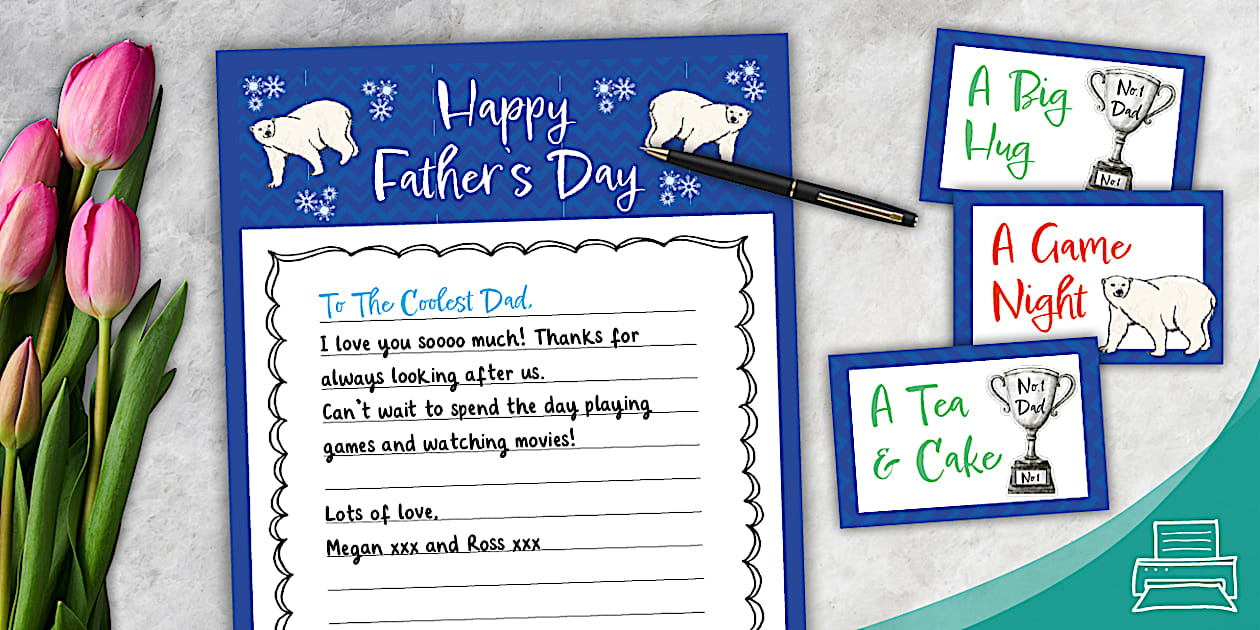 Happy
Father's Day
To The Coolest Dad,
I love you soooo much! Thanks for
always looking after us.
Can't wait to spend the day playing
games and watching movies!
Lots of love,
Megan xxx and Ross xxx
A Big
Hug
No.1
Dad
No1
A Game
Night
A Tea
& Cake
No.1
Dad
No1